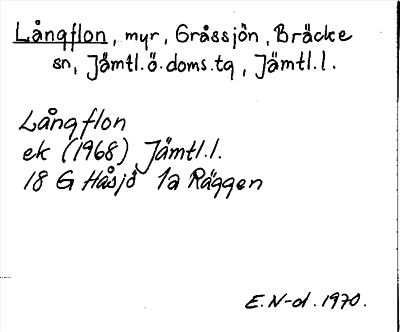 Långflon, myr, Gråssjön, Bräcke
sn, Jämtl.ö.doms.tg, Jämtl.l.
Långflon
ek (1968) Jämtl.l.
18 G Håsjö 1a Räggen
E.N-d. 1970.